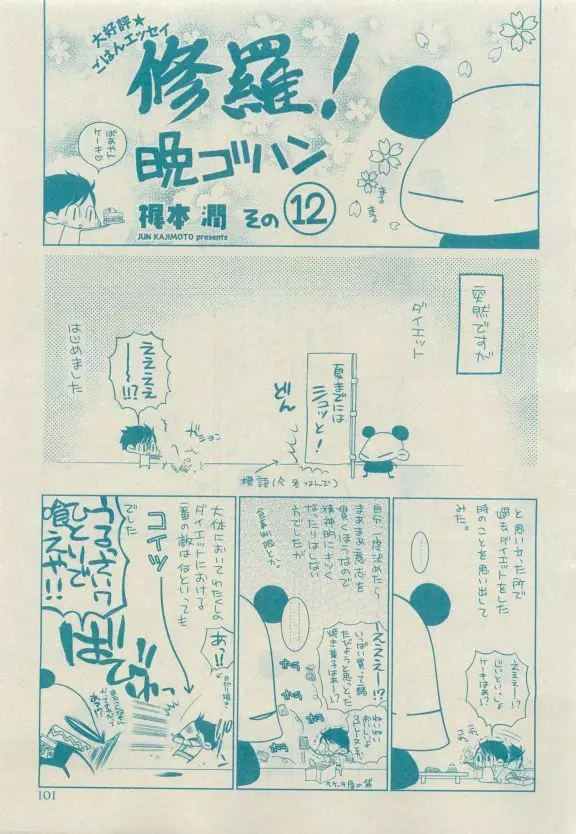 大好評★
ごはんエッセイ
修羅!
晩ゴハン
梶本潤 その⑫
JUN KAJIMOTO presents
ばあやん
ケーキ♡
突然ですが
ダイエット
はじめました
夏までには
シュッと!
どん
ええええ
ーー!!?
ガション
標語(今るはんで)
と思い立った所で
過去ダイエットをした
時のことを思い出して
みた。
…………
ええぇー!?
じいといっしょ
ケーキはぁー!?
自分一度決めたら
まあまあ意志を
貫くほうなので
精神的にキツく
なったりはしない
んでしたが
ええぇー!?
いっぱい買って鍋
たびようと思っとった
焼き菓子はぁー!?
わいわい
おいしいよ
大体において わたくしの
ダイエットにおける
一番の敵は何といっても
コイツ
でした
あっ!!
うるっさいに
ひとりで
喰えや!!
101